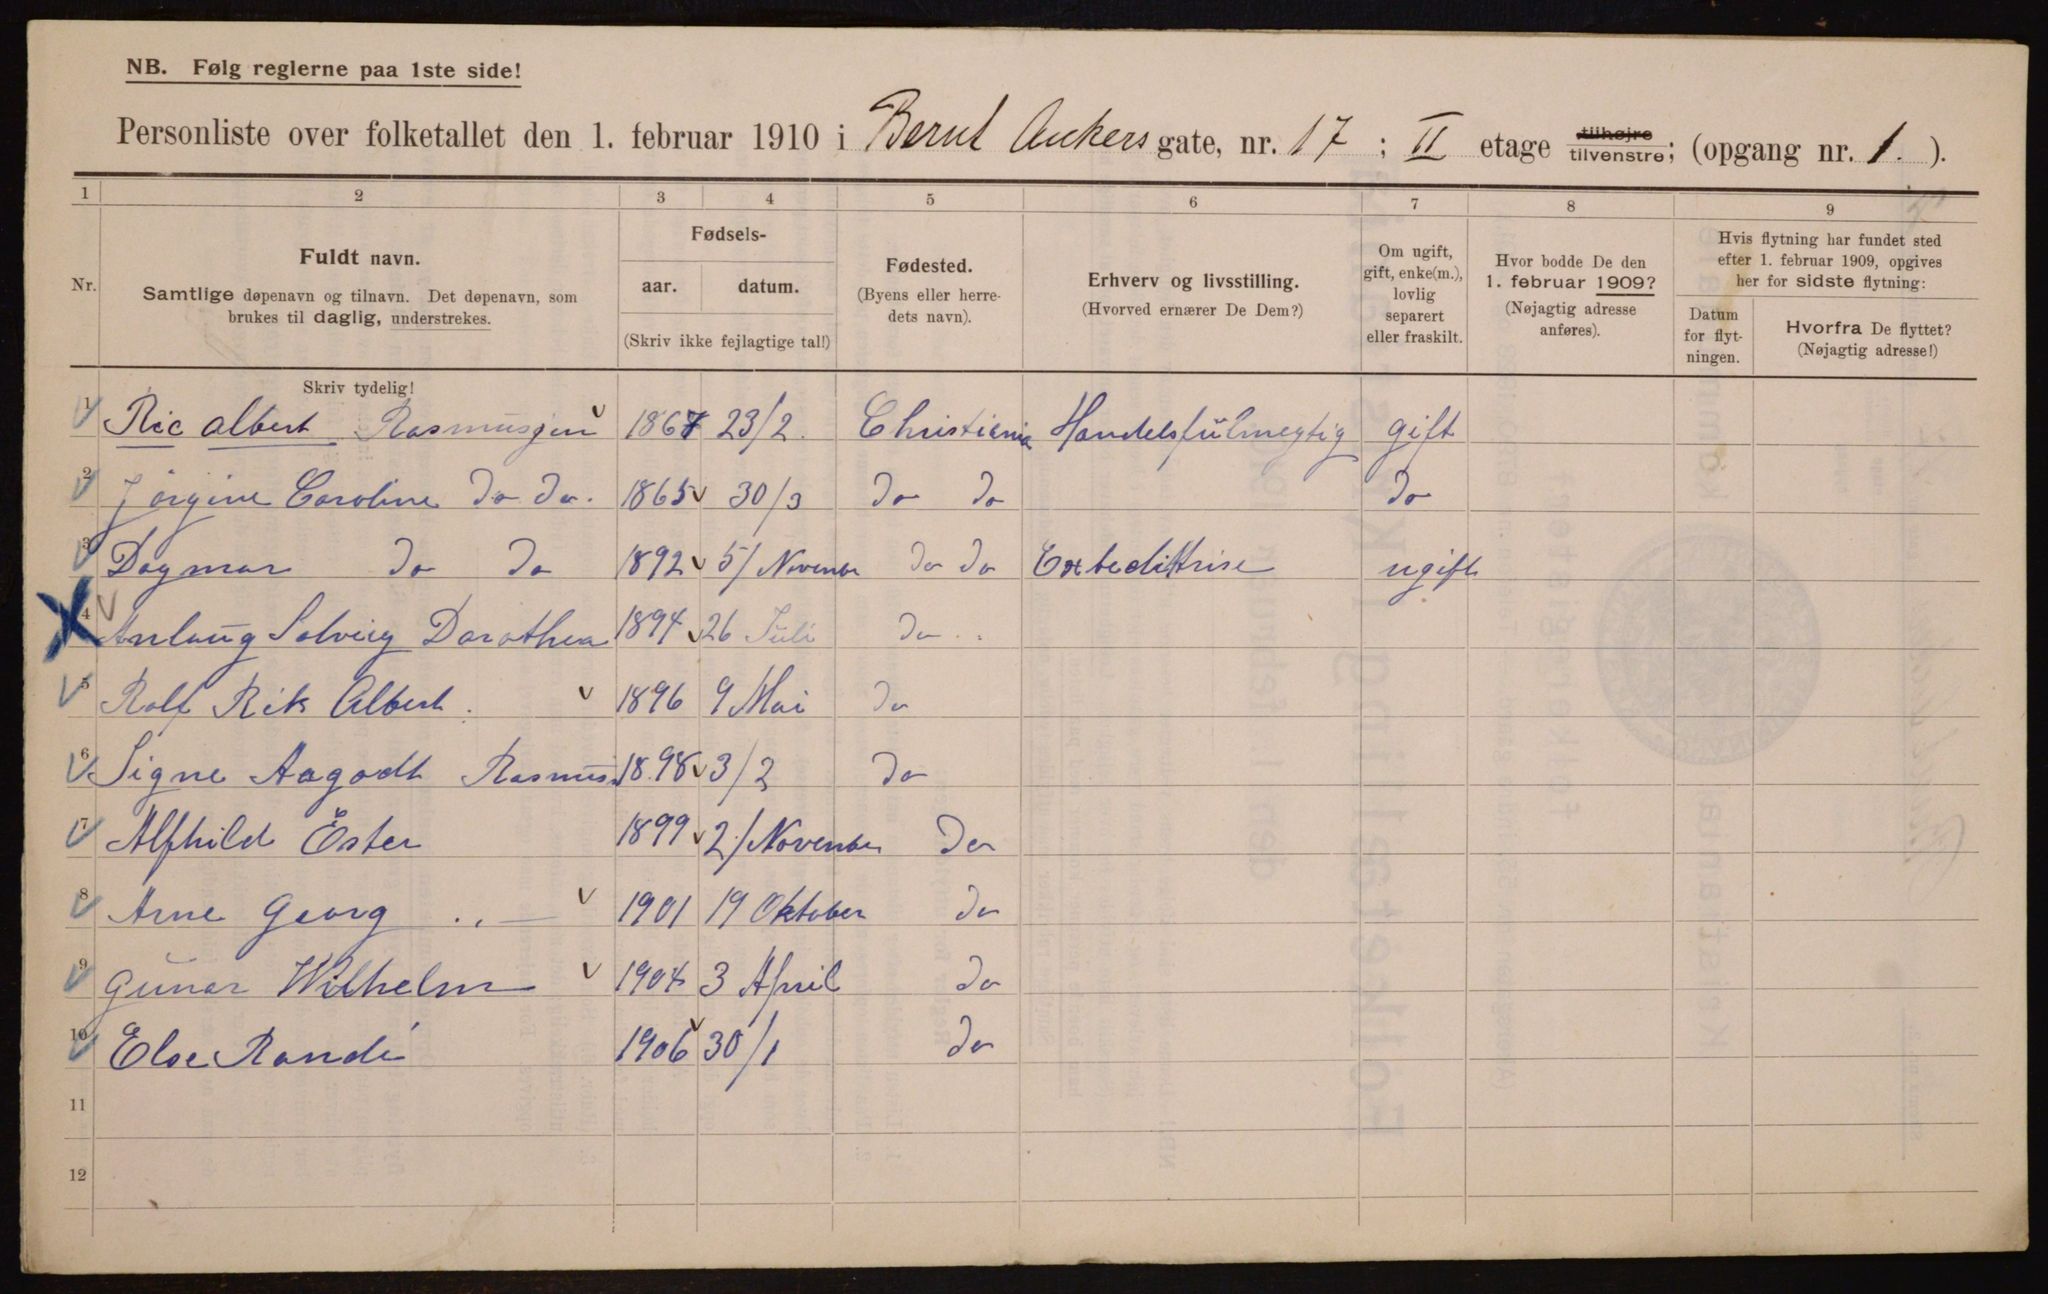 NB. Følg reglerne paa 1ste side!
Personliste over folketallet den 1. februar 1910 i Bernt Ankers gate, nr. 17 ; II etage tilhøjre tilvenstre; (opgang nr. 1. ).
1 2 3 4 5 6 7 8 9
Nr.
Fuldt navn.
Samtlige døpenavn og tilnavn. Det døpenavn, som
brukes til daglig, understrekes.
Fødsels-
aar. datum.
(Skriv ikke fejlagtige tal!)
Fødested.
(Byens eller herre-
dets navn).
Erhverv og livsstilling.
(Hvorved ernærer De Dem?)
Om ugift,
gift, enke(m.),
lovlig
separert
eller fraskilt.
Hvor bodde De den
1. februar 1909?
(Nøjagtig adresse
anføres).
Hvis flytning har fundet sted
efter 1. februar 1909, opgives
her for sidste flytning:
Datum
for flyt-
ningen.
Hvorfra De flyttet?
(Nøjagtig adresse!)
Skriv tydelig!
1 Ric Albert Rasmussen 1867 23/2. Christiania Handelsfulmegtig gift
2 Jørgine Caroline do do. 1865 30/3 do do do
3 Dagmar do do 1892 5/ November do do Exbedittrise ugift
4 Anlaug Solveig Dorothea 1894 26 Juli do
5 Rolf Rik Albert. 1896 9 Mai do
6 Signe Aagodt Rasmus 1898 3/2 do
7 Alfhild Ester 1899 2/ November do
8 Arne Georg 1901 19 Oktober do
9 Gunar Wilhelm 1904 3 April do
10 Else Randi 1906 30/1 do
11
12